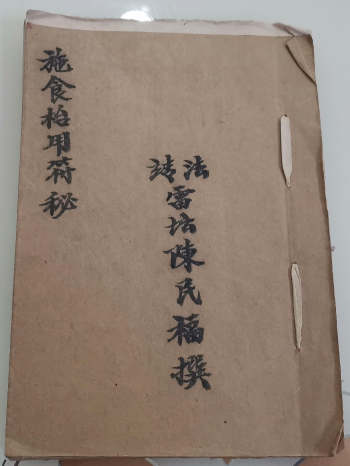 法靖雷坛陳民福撰
施食枱用符秘